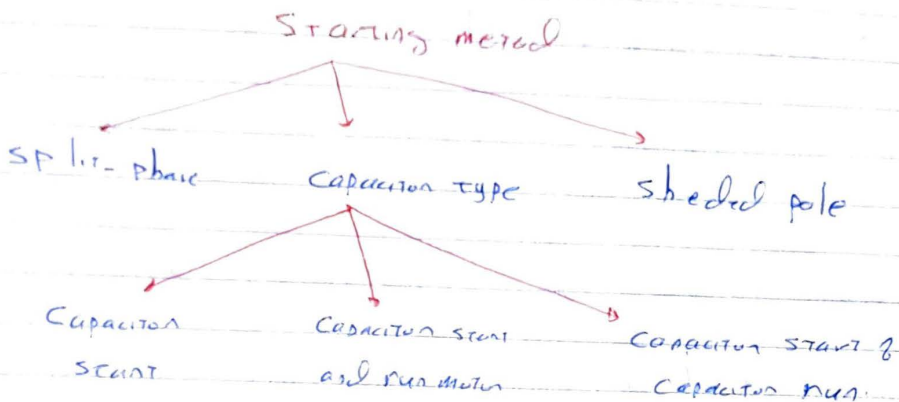 Starting metod
split-phase
Capaciton type
sheded pole
Capaciton
start
Capaciton start
and run moton
Capaciton start &
Capaciton run.